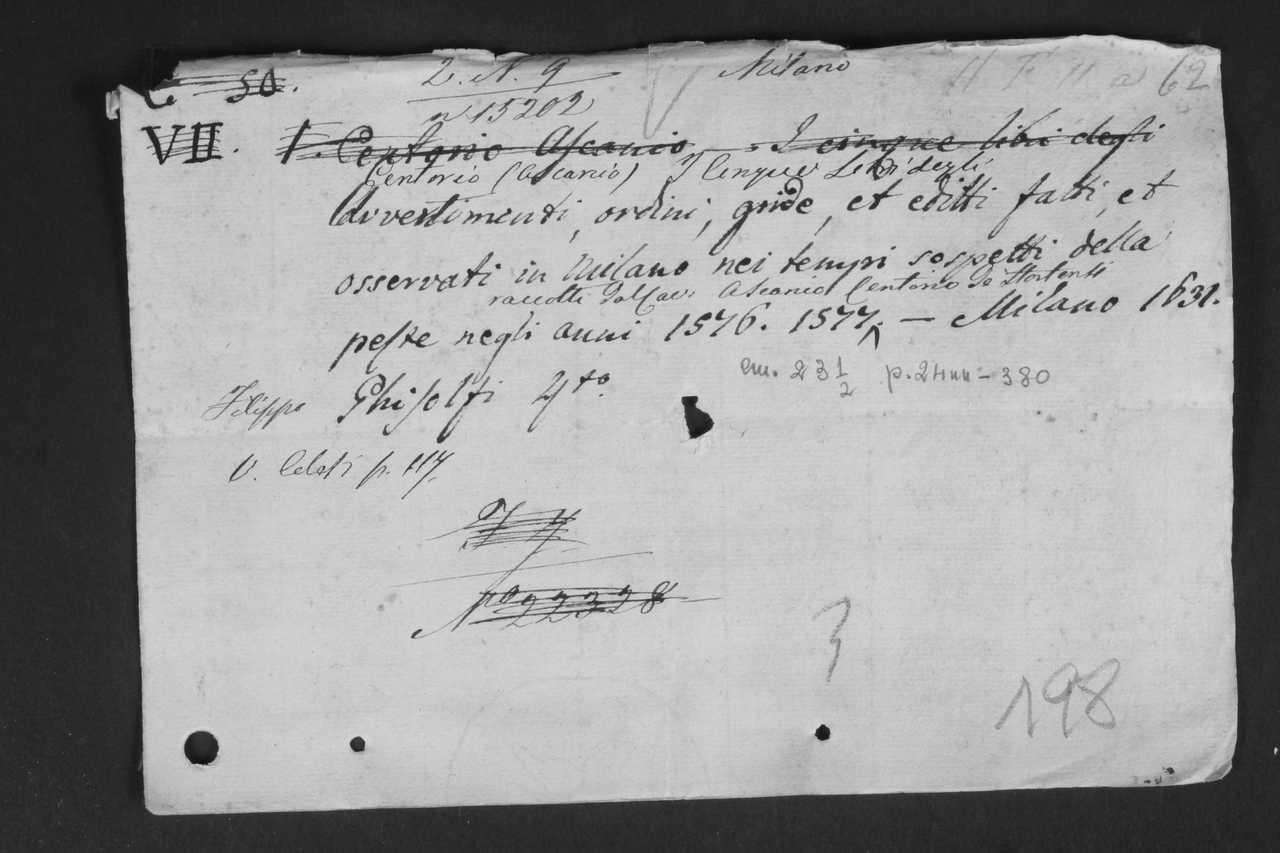 50.
2. N. 9
Milano
62
n 15202
VII. 1. Centorio Ascanio - I cinque libri degli
Centorio (Ascanio) I Cinque Libri degli
avvertimenti, ordini, gride, et editti fatti, et
osservati in Milano nei tempi sospetti della
raccolti dal Cav. Ascanio Centorio de Hortensi
peste negli anni 1576. 1577. — Milano 1631.
cm. 23 1/2 p. 24nn - 380
Filippo Ghisolfi 4to
V. Celoti p. 117.
No 22328
198